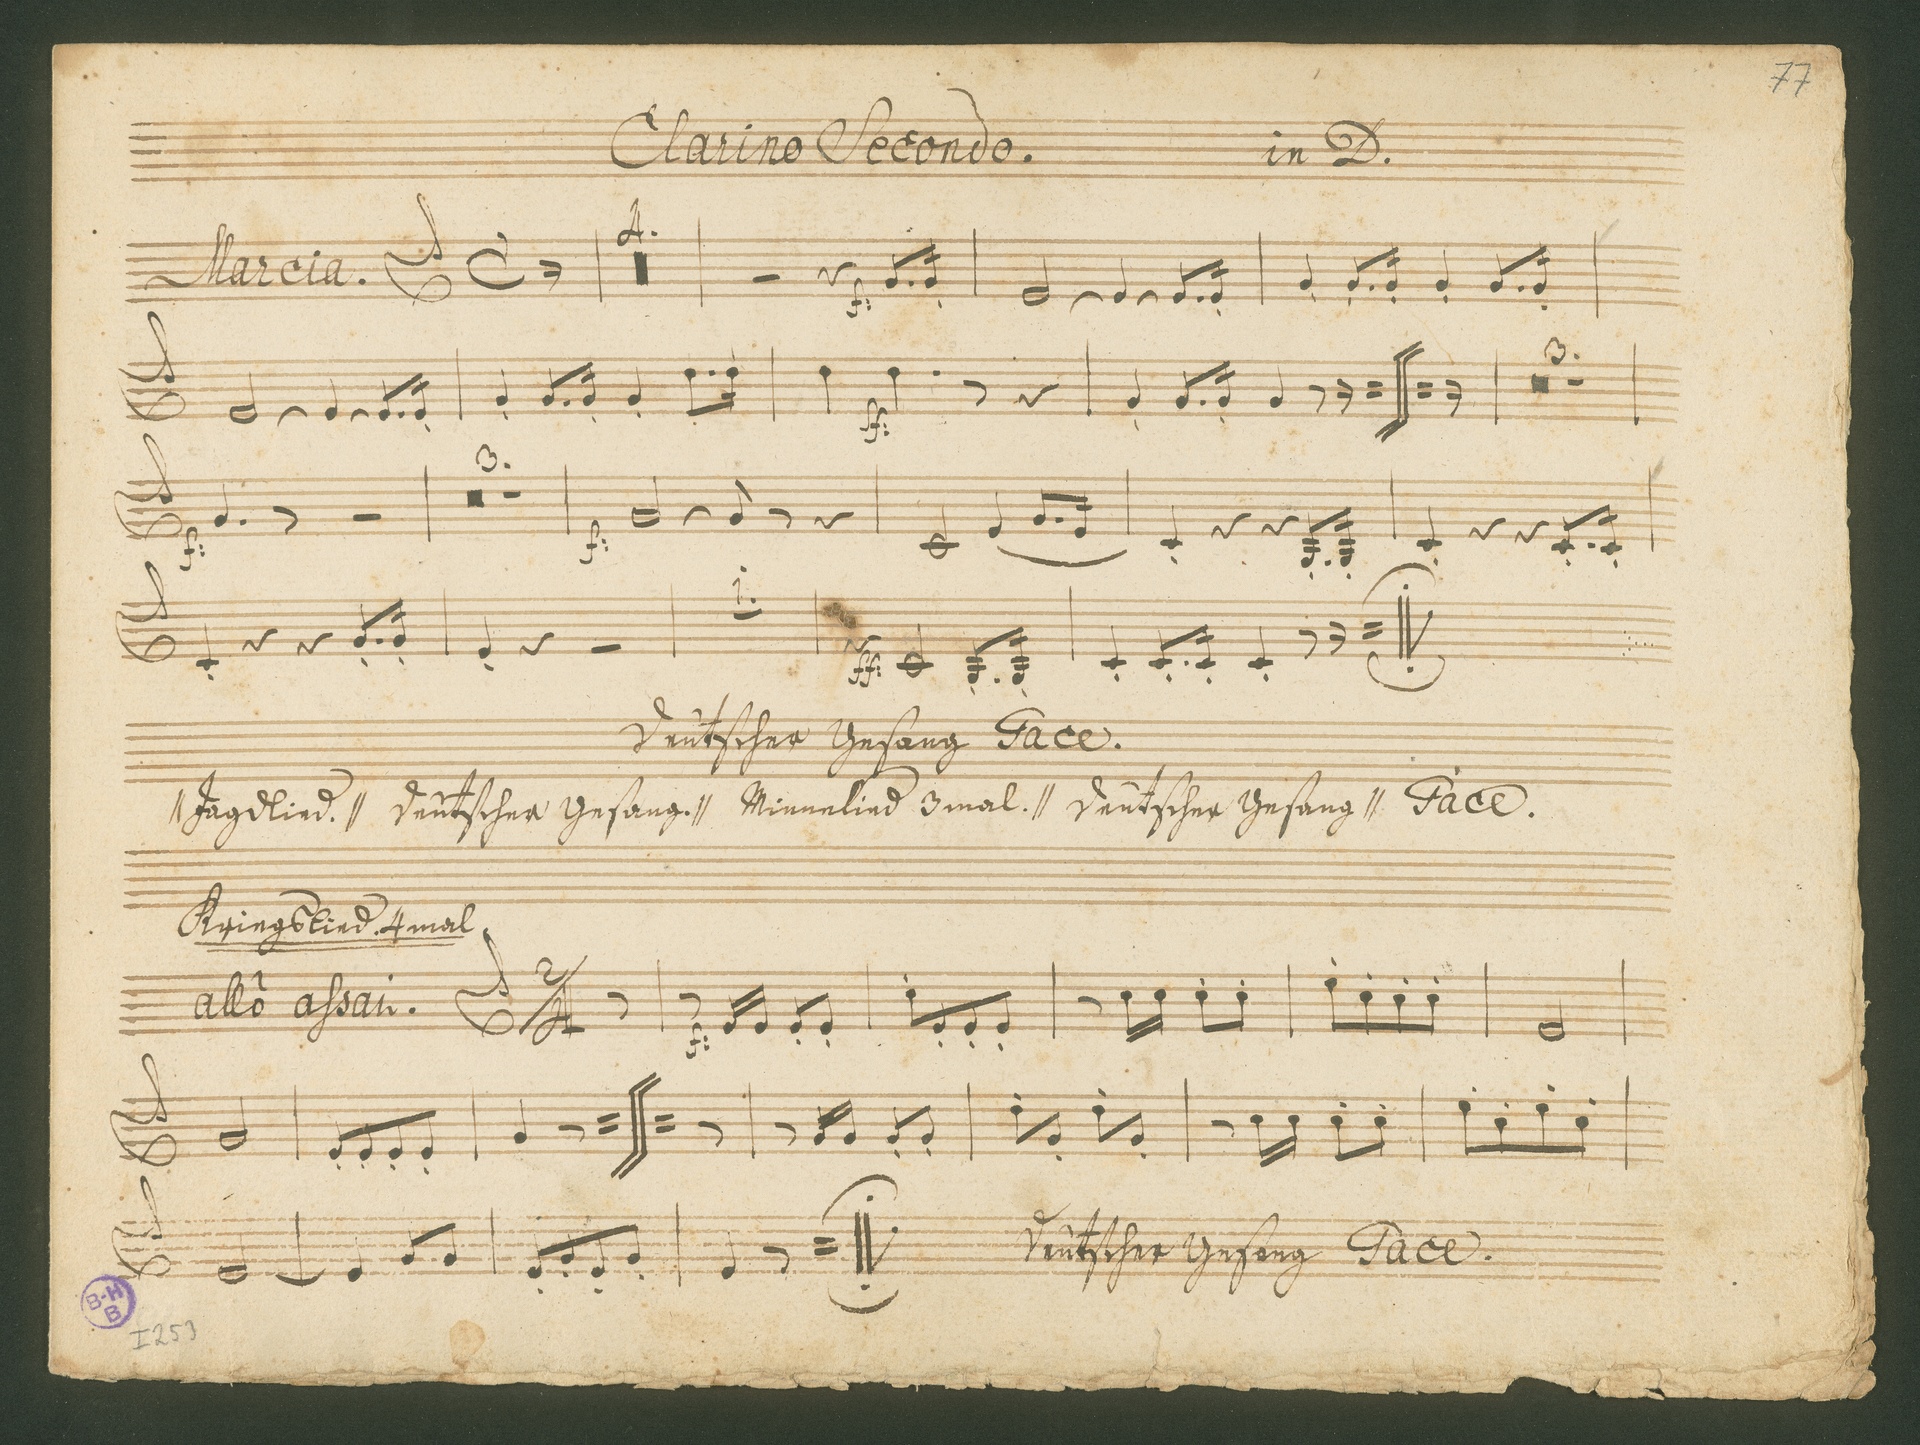 77
Clarino Secondo. in D.
Marcia. 4.
f:
3.
ff:
3.
f: f:
1.
ff:
Deutscher Gesang Tace.
// Jagdlied. // Deutscher Gesang. // Minnelied 3mal. // Deutscher Gesang // Tace.
Kriegslied. 4mal.
allo assai. 2/4
f:
Deutscher Gesang Tace.
B-H
B
I 253